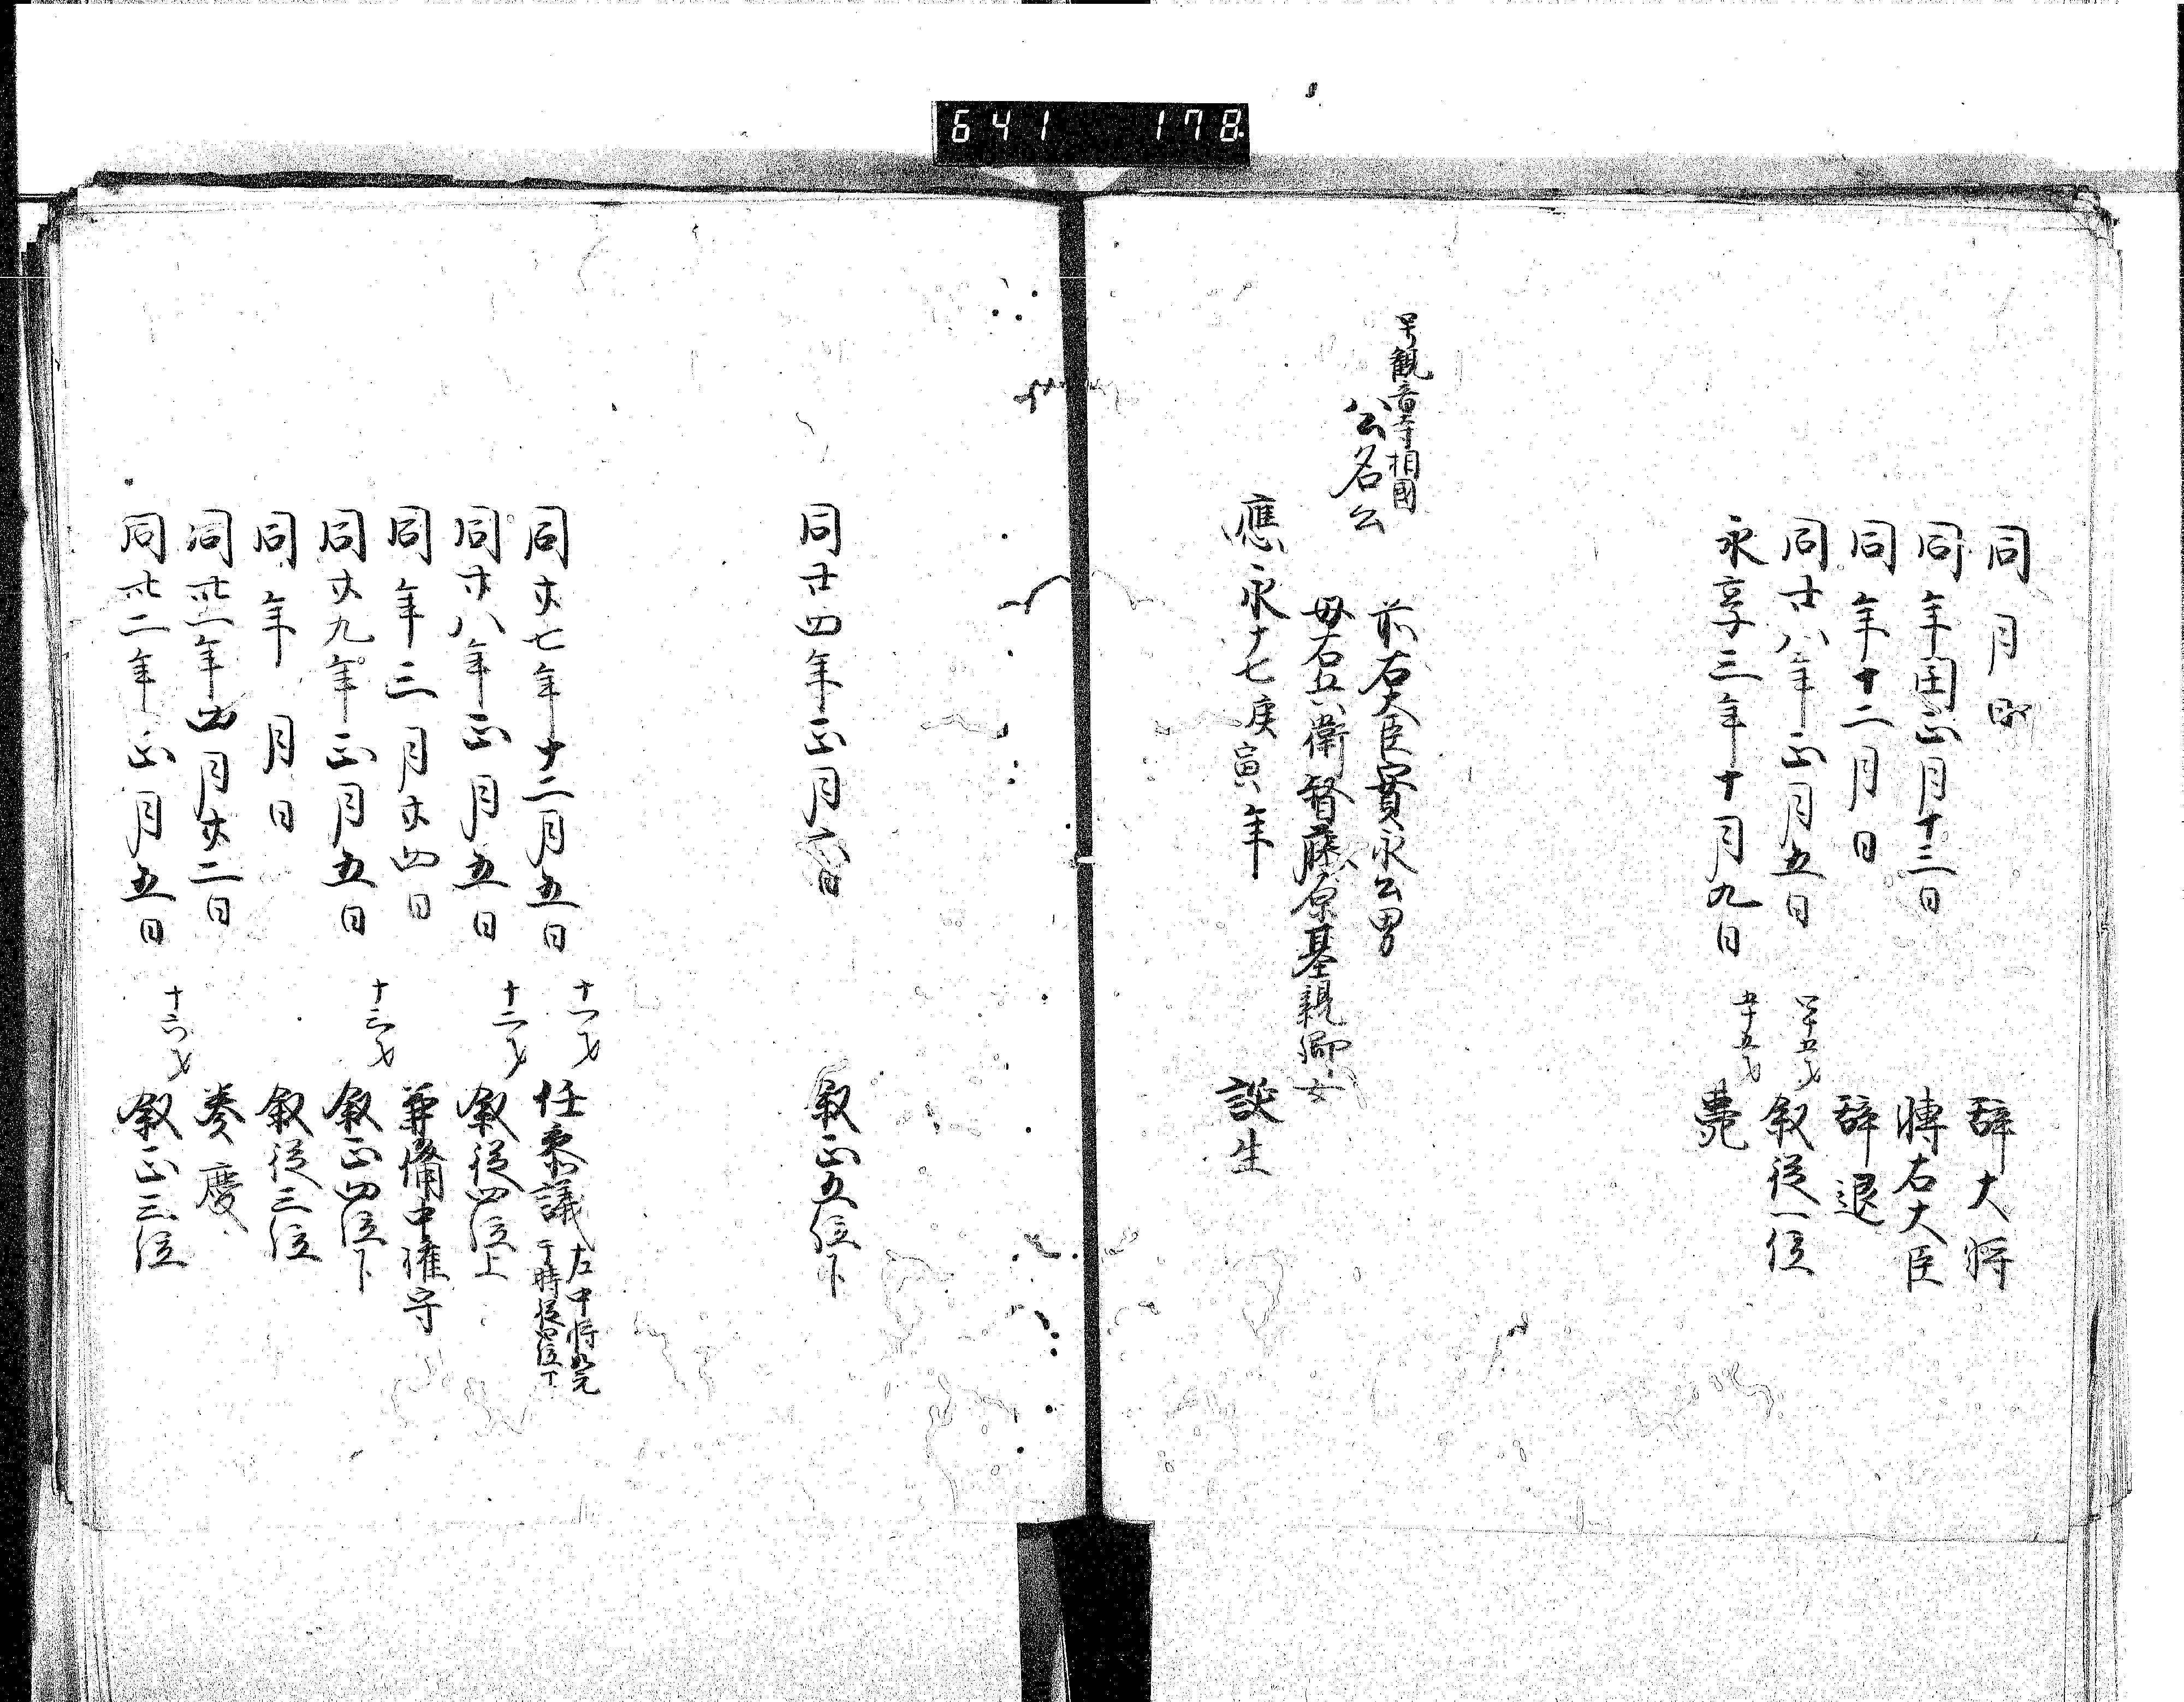 641 178
同 月 日 辞大将
同年閏正月十三日 轉右大臣
同年十二月日 辞退
同廿八年正月五日 四十五才 叙従一位
永享三年十月九日 五十五才 薨
号観音寺相國
公名公
前右大臣實永公男
母右兵衛督藤原基親卿女
應永十七庚寅年 誕生
同廿四年正月六日 叙正五位下
同廿七年十二月五日 十一才 任参議 左中将如元 于時従四位下
同廿八年正月五日 十二才 叙従四位上
同年三月廿四日 兼備中権守
同廿九年正月五日 十三才 叙正四位下
同年 月日 叙従三位
同卅一年四月廿二日 奏慶
同卅二年正月五日 十六才 叙正三位